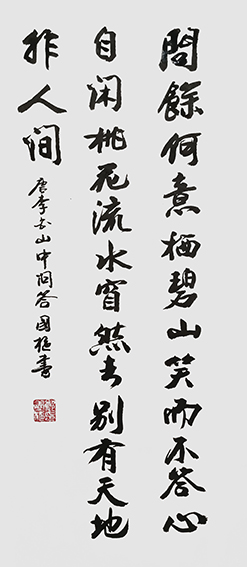 問餘何意栖碧山笑而不答心
自闲桃花流水窅然去别有天地
非人间
唐李白山中问答国植书